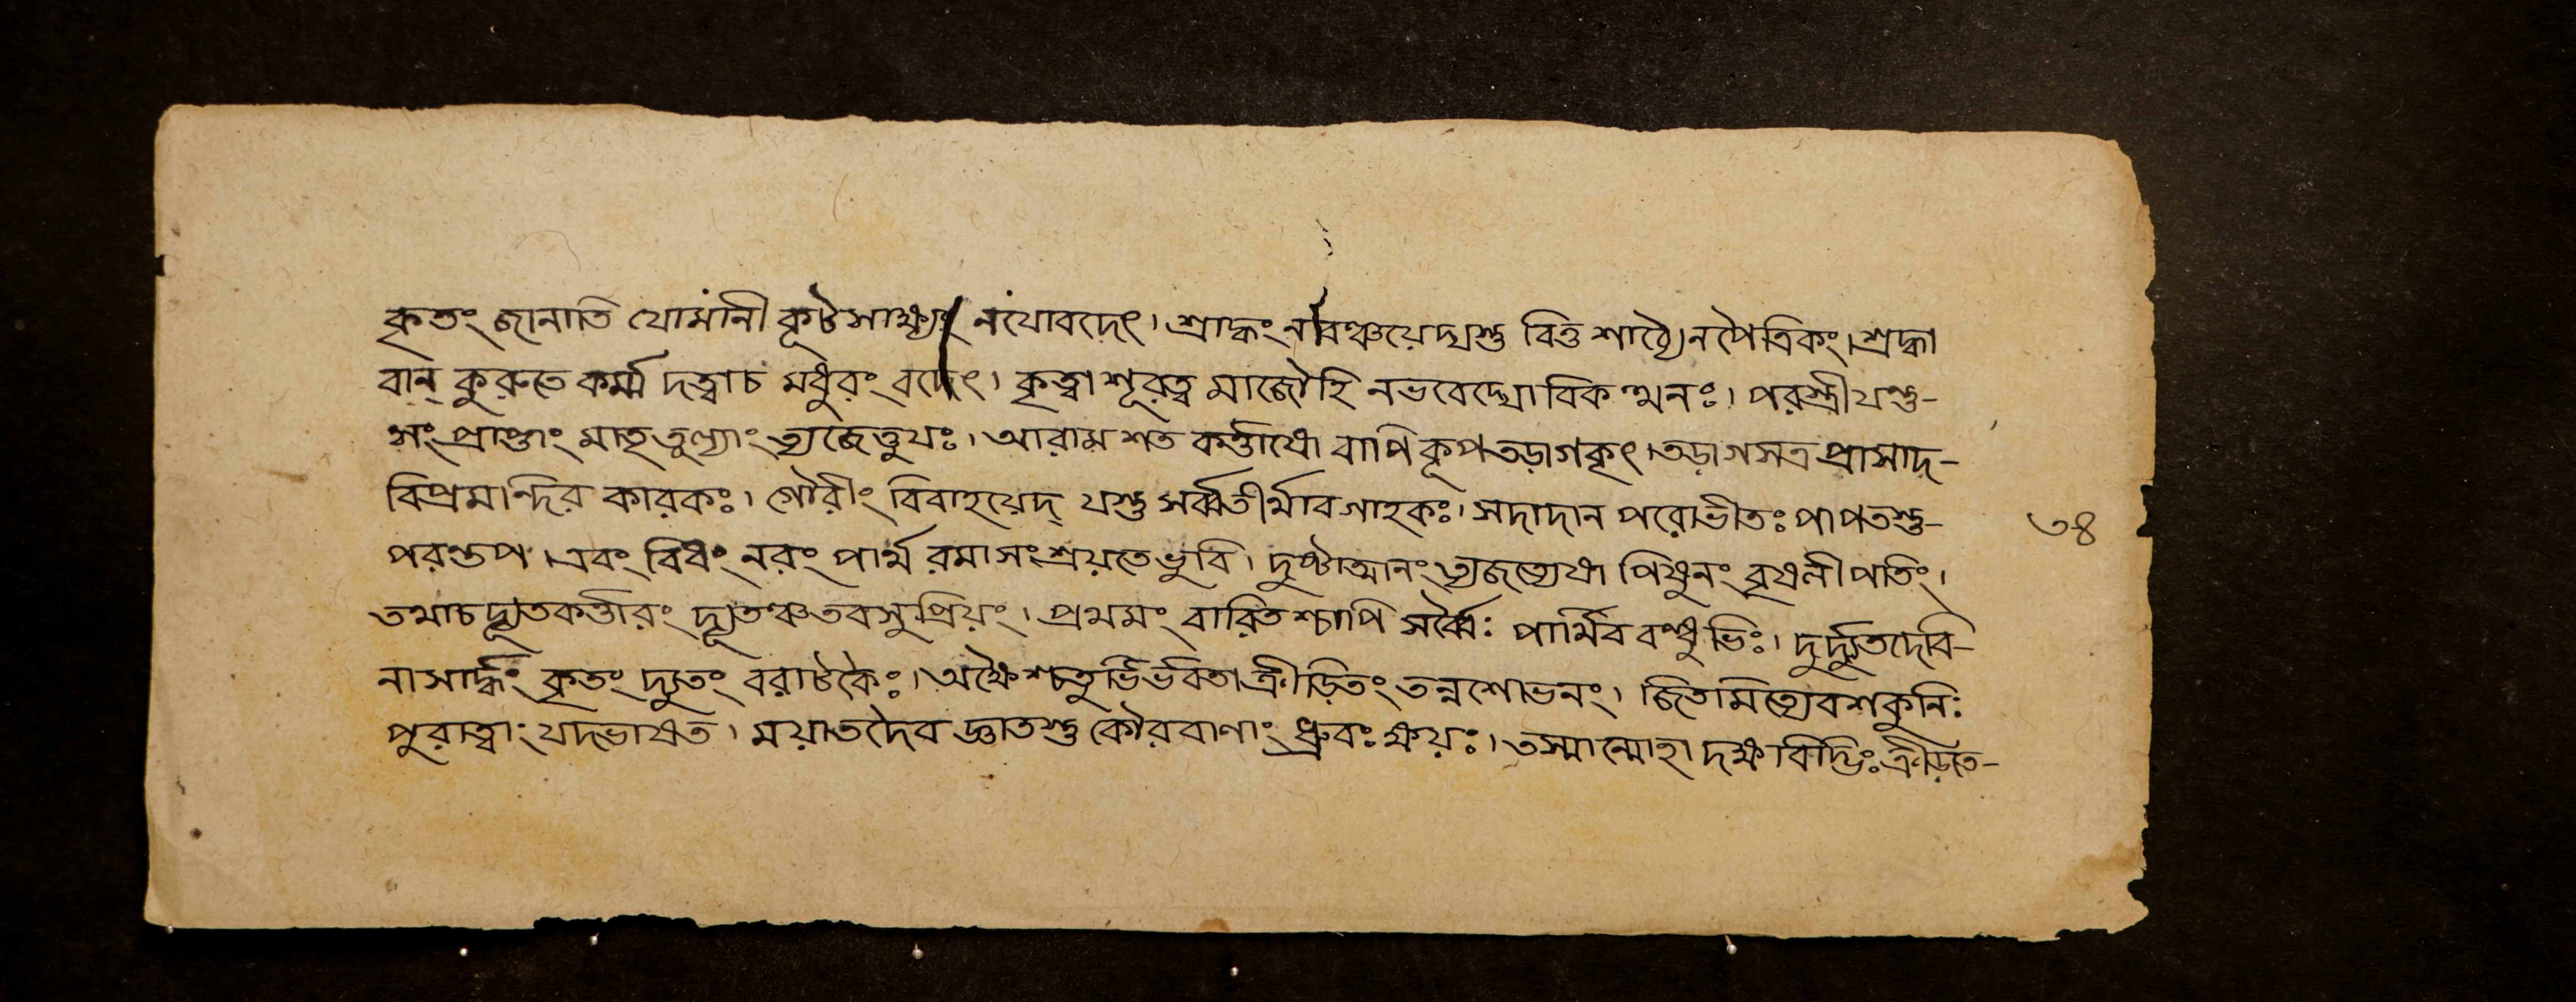 কৃতং জানাতি যোমানী কূটসাক্ষ্যং নযোবদেৎ। শ্রাদ্ধং নবিঞ্চয়েদ্যস্তু বিত্ত শাঠ্যেনপৈত্রিকং। শ্রদ্ধা
বান্ কুরুতে কর্ম্ম দত্বাচ মধুরং বদেৎ। কৃত্বা শূরত্ব মাজৌহি নভবেদ্যো বিকত্থনঃ। পরস্ত্রীযস্তু-
সং প্রাপ্তাং মাতৃ তুল্যাং ত্যজেত্তুযঃ। আরাম শত কর্ত্তাযো বাপি কূপতড়াগকৃৎ। তড়াগসত্র প্রাসাদ-
বিপ্রমান্দির কারকঃ। গৌরীং বিবাহয়েদ্ যস্তু সর্ব্বতীর্থাবগাহকঃ। সদাদান পরোভীতঃ পাপতস্তু-
পরন্তপ। এবং বিধং নরং পার্থ রমাসংশ্রয়তেভুবি। দুষ্টাত্মানং ত্যজত্যেষা পিষুনং বৃষলীপতিং।
তথাচদ্যূতকর্ত্তারং দ্যূতঞ্চতবসুপ্রিয়ং। প্রথমং বারিতশ্চাপি সর্ব্বৈঃ পার্থিব বন্ধুভিঃ। দুর্দ্যূতদেবি-
নাসার্দ্ধং কৃতং দ্যুতং বরাটকৈঃ। অক্ষৈশ্চতুর্ভির্ভবতাক্রীড়িতং তন্নশোভনং। জিতমিত্যেবশকুনিঃ
পুরাত্বাং যদভাষত। ময়াতদৈব জ্ঞাতস্তু কৌরবাণাং ধ্রুবঃ ক্ষয়ঃ। তস্মান্মোহা দক্ষবিদ্ভিঃ ক্রীড়তে-
৩৪